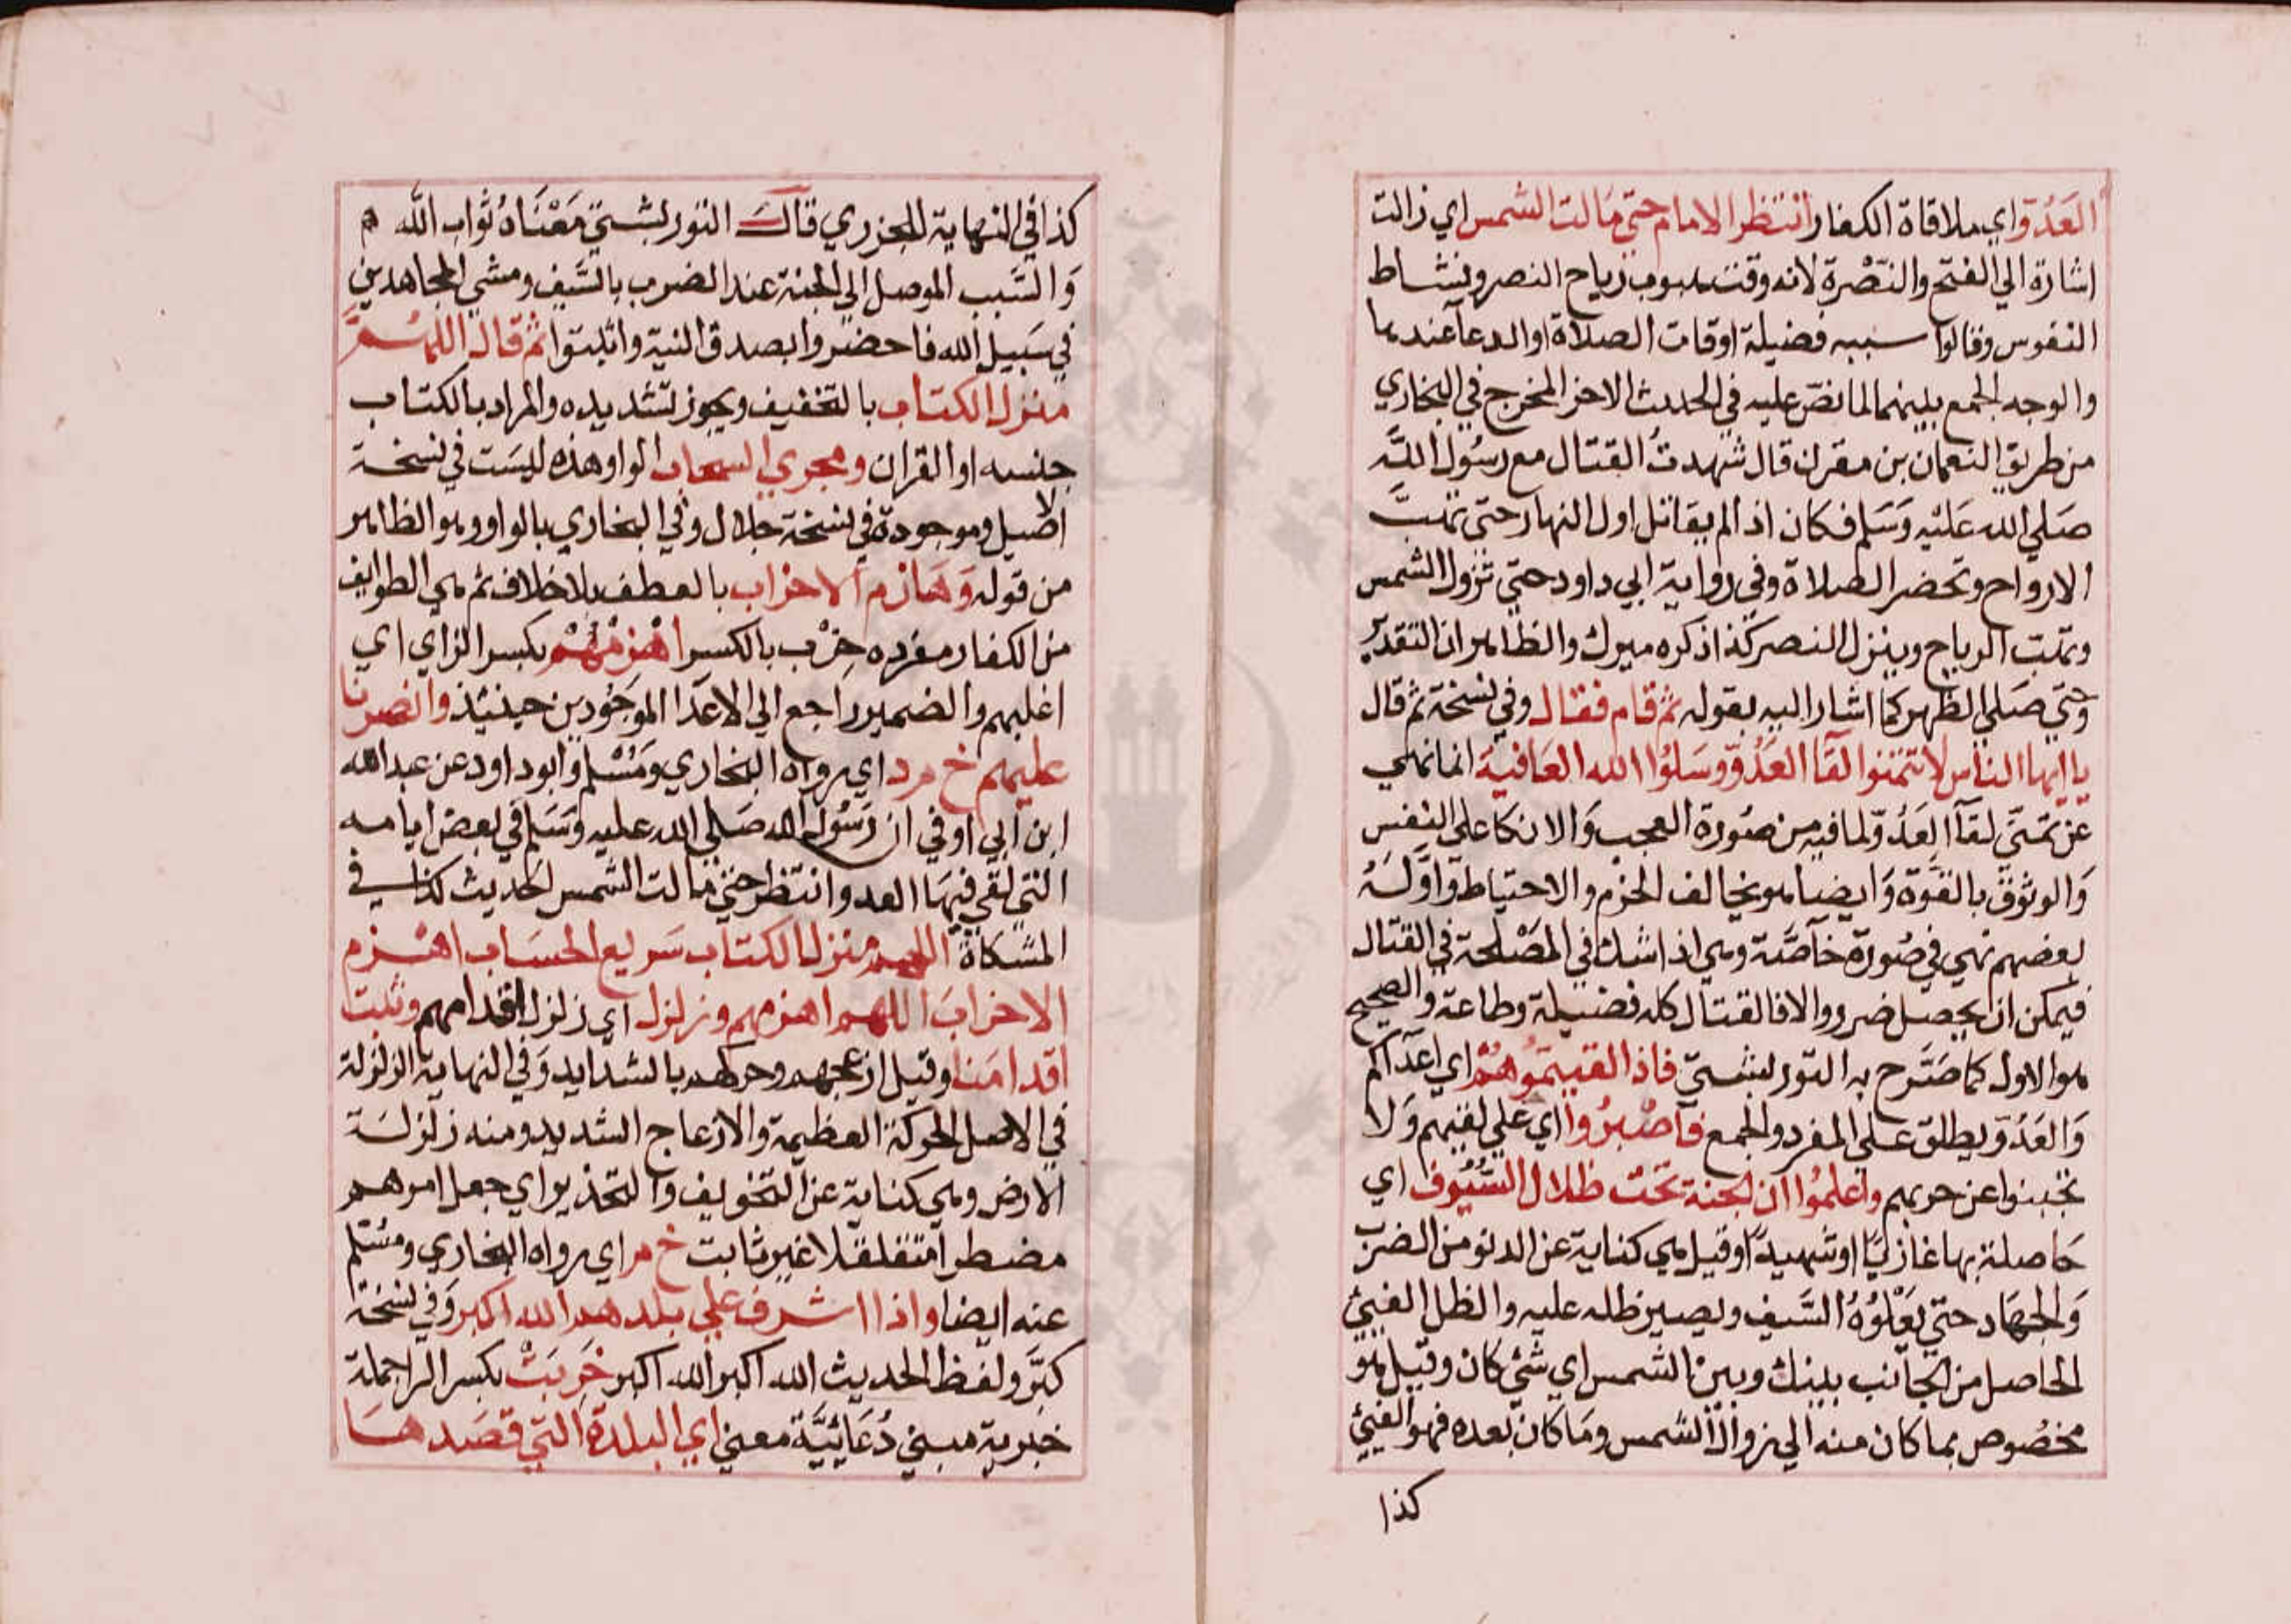 العَدُوّ اي ملاقاة الكفار وانتظر الامام حتى مَالت الشمس اي زالت
اشارة الي الفتح والنّصْرة لانه وقت هبوب رياح النصر ونشاط
النفوس وقالوا سببه فضيلة اوقات الصلاة او الدعآ عندها
والوجه الجمع بينهما لما نصّ عليه في الحديث الاخر المخرج في البخاري
من طريق النعمان بن مقرن قال شهدتُ القتال مع رسُول اللّه
صَلي الله عَليْه وَسَلم فكان اذا لم يقاتل اول النهار حتى تهبّ
الارواح وتحضر الصلاة وفي رواية ابي داود حتى تزول الشمس
وتهب الرياح وينزل النصر كذا ذكره ميرك والظاهر ان التقدير
وحتي صَلي الظهر كما اشار اليه بقوله ثم قام فقال وفي نسخة ثم قال
يا ايها الناس لا تتمنوا لقآ العَدُوّ وسَلوُا الله العَافية انما نهي
عن تمنّي لقآ العَدُوّ لما فيه من صُورة العجب وَالاتكا على النفس
وَالوثوق بالقوّة وَايضا هو يخالف الحزم والاحتياط وَاوّلهُ
بعضهم نهي في صُورة خآصّة وهي اذا شك في المصْلحة في القتال
فيمكن ان يحصل ضرر والا فالقتال كله فضيلة وطاعة والصحيح
هو الاول كما صَرّح به التوربشتيّ فاذا لقيتموُهمْ اي اعدآكم
وَالعَدُوّ يطلق علي المفرد والجمع فآصْبرُوا اي علي لقيهم وَلا
تجبنوا عن حربهم واعلمُوا ان الجنة تحت ظلال السُيُوف اي
حَاصلة بها غازيًا او شهيدًا وقيل هي كناية عن الدنو من الضرب
وَالجهَاد حتى يعْلوُهُ السَيف ويصير ظله عليه والظل الفيئ
الحاصل من الجانب بينك وبين الشمس اي شئ كان وقيل هو
مخصُوص بما كان منه الي زوال الشمس ومَا كان بعده فهو الفيئ
كذا
كذا في النهاية للجزري قال التوربشتي مَعْنَاهُ ثواب اللّه
وَالسَبب الموصل الي الجنة عند الضرب بالسَيف ومشي المجاهدين
في سَبيل الله فاحضروا بصدق النية واثبتوا ثم قال اللهُمَّ
منزل الكتاب بالتخفيف ويجوز تشديده والمراد بالكتاب
جنسه او القران ومجري السحاب الواو هذه ليسَت في نسخة
الاصيل وموجودة في نسخة جلال وفي البخاري بالواو وهو الظاهر
من قوله وَهَازم الاحزاب بالعطف بلا خلاف ثم هي الطوايف
من الكفار مفرده حِزْب بالكسر اهْزمْهُمْ بكسر الزاي اي
اغلبهم والضمير راجع الي الاعدَا الموَجُودين حينئذ وانصرنا
عليهم خ م د اي رواه البخاري ومُسْلم وابو داود عن عبد الله
ابن ابي اوفي ان رَسُول الله صَلي الله عليه وَسَلم في بعض ايامه
التي لقي فيهَا العدو انتظر حتي مَالت الشمس الحديث كذا في
المشكاة اللهم منزل الكتاب سَريع الحسَاب اهْزم
الاحزابَ اللهم اهزمهم وزلزل اي زلزل اقدامهم وثبت
اقدامَنا وقيل ازعجهم وحركهم بالشدايد وَفي النهاية الزلزلة
في الاصل الحركة العظيمة والازعاج الشديد ومنه زلزلة
الارض وهي كناية عن التخويف والتحذير اي جعل امرهم
مضطرا متقلقلا غير ثابت خ م اي رواه البخاري ومسْلم
عنه ايضا واذا اشرف علي بلدهم الله اكبر وَفي نسخة
كبّرَ ولفظ الحديث الله اكبر الله اكبر خَرِبَتْ بكسر الرا جملة
خبرية مبني دُعَائيَّة معني اي البلدة التي قصَدهَا